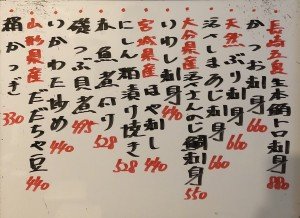 長崎産生本鮪トロ刺身 880
かつお刺身 660
天然ぶり刺身 660
活〆しまあじ刺身 660
大分県産活〆かんのじ鯛刺身 550
いわし刺身 440
宮城県産ほや刺し 440
にしん酒漬り焼き 528
赤魚煮付り 528
磯つぶ煮 495
いかわた炒め 440
山形県産だだちゃ豆 440
絹かつぎ 330